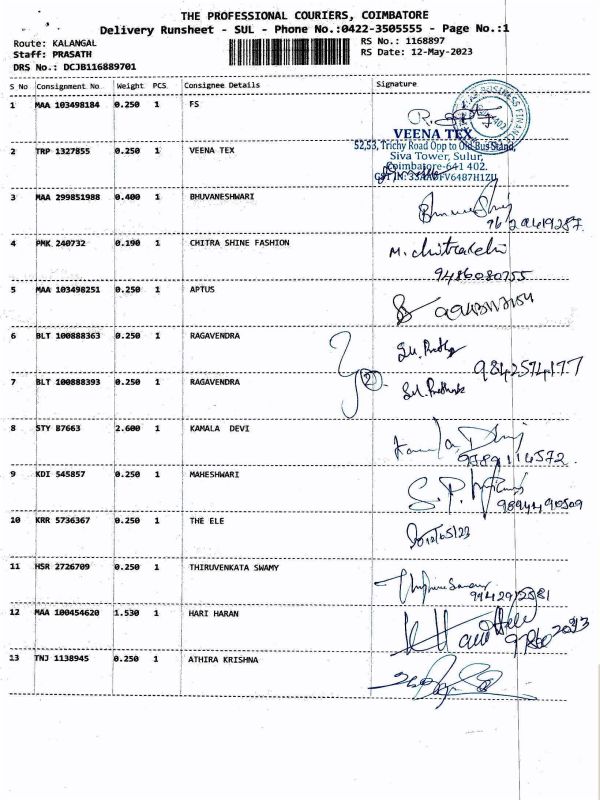 THE PROFESSIONAL COURIERS, COIMBATORE
Delivery Runsheet - SUL - Phone No.:0422-3505555 - Page No.:1
Route: KALANGAL
RS No.: 1168897
Staff: PRASATH
RS Date: 12-May-2023
DRS No.: DCJB116889701
S No Consignment No Weight PCS Consignee Details Signature
1 MAA 103498184 0.250 1 FS
VEENA TEX
52,53, Trichy Road Opp to Old Bus Stand,
2 TRP 1327855 0.250 1 VEENA TEX
Siva Tower, Sulur,
Coimbatore-641 402.
3 MAA 299851988 0.400 1 BHUVANESHWARI
4 PMK 240732 0.190 1 CHITRA SHINE FASHION
9486080755
5 MAA 103498251 0.250 1 APTUS
6 BLT 100888363 0.250 1 RAGAVENDRA
9842574177
7 BLT 100888393 0.250 1 RAGAVENDRA
8 STY 87663 2.600 1 KAMALA DEVI
9 KDI 545857 0.250 1 MAHESHWARI
10 KRR 5736367 0.250 1 THE ELE
11 HSR 2726709 0.250 1 THIRUVENKATA SWAMY
12 MAA 100454620 1.530 1 HARI HARAN
13 TNJ 1138945 0.250 1 ATHIRA KRISHNA